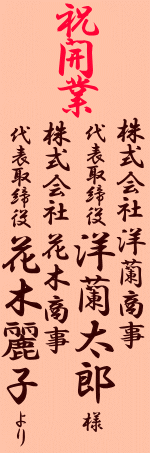 祝開業
株式会社 洋蘭商事
代表取締役 洋蘭太郎 様
株式会社 花木商事
代表取締役 花木麗子 より